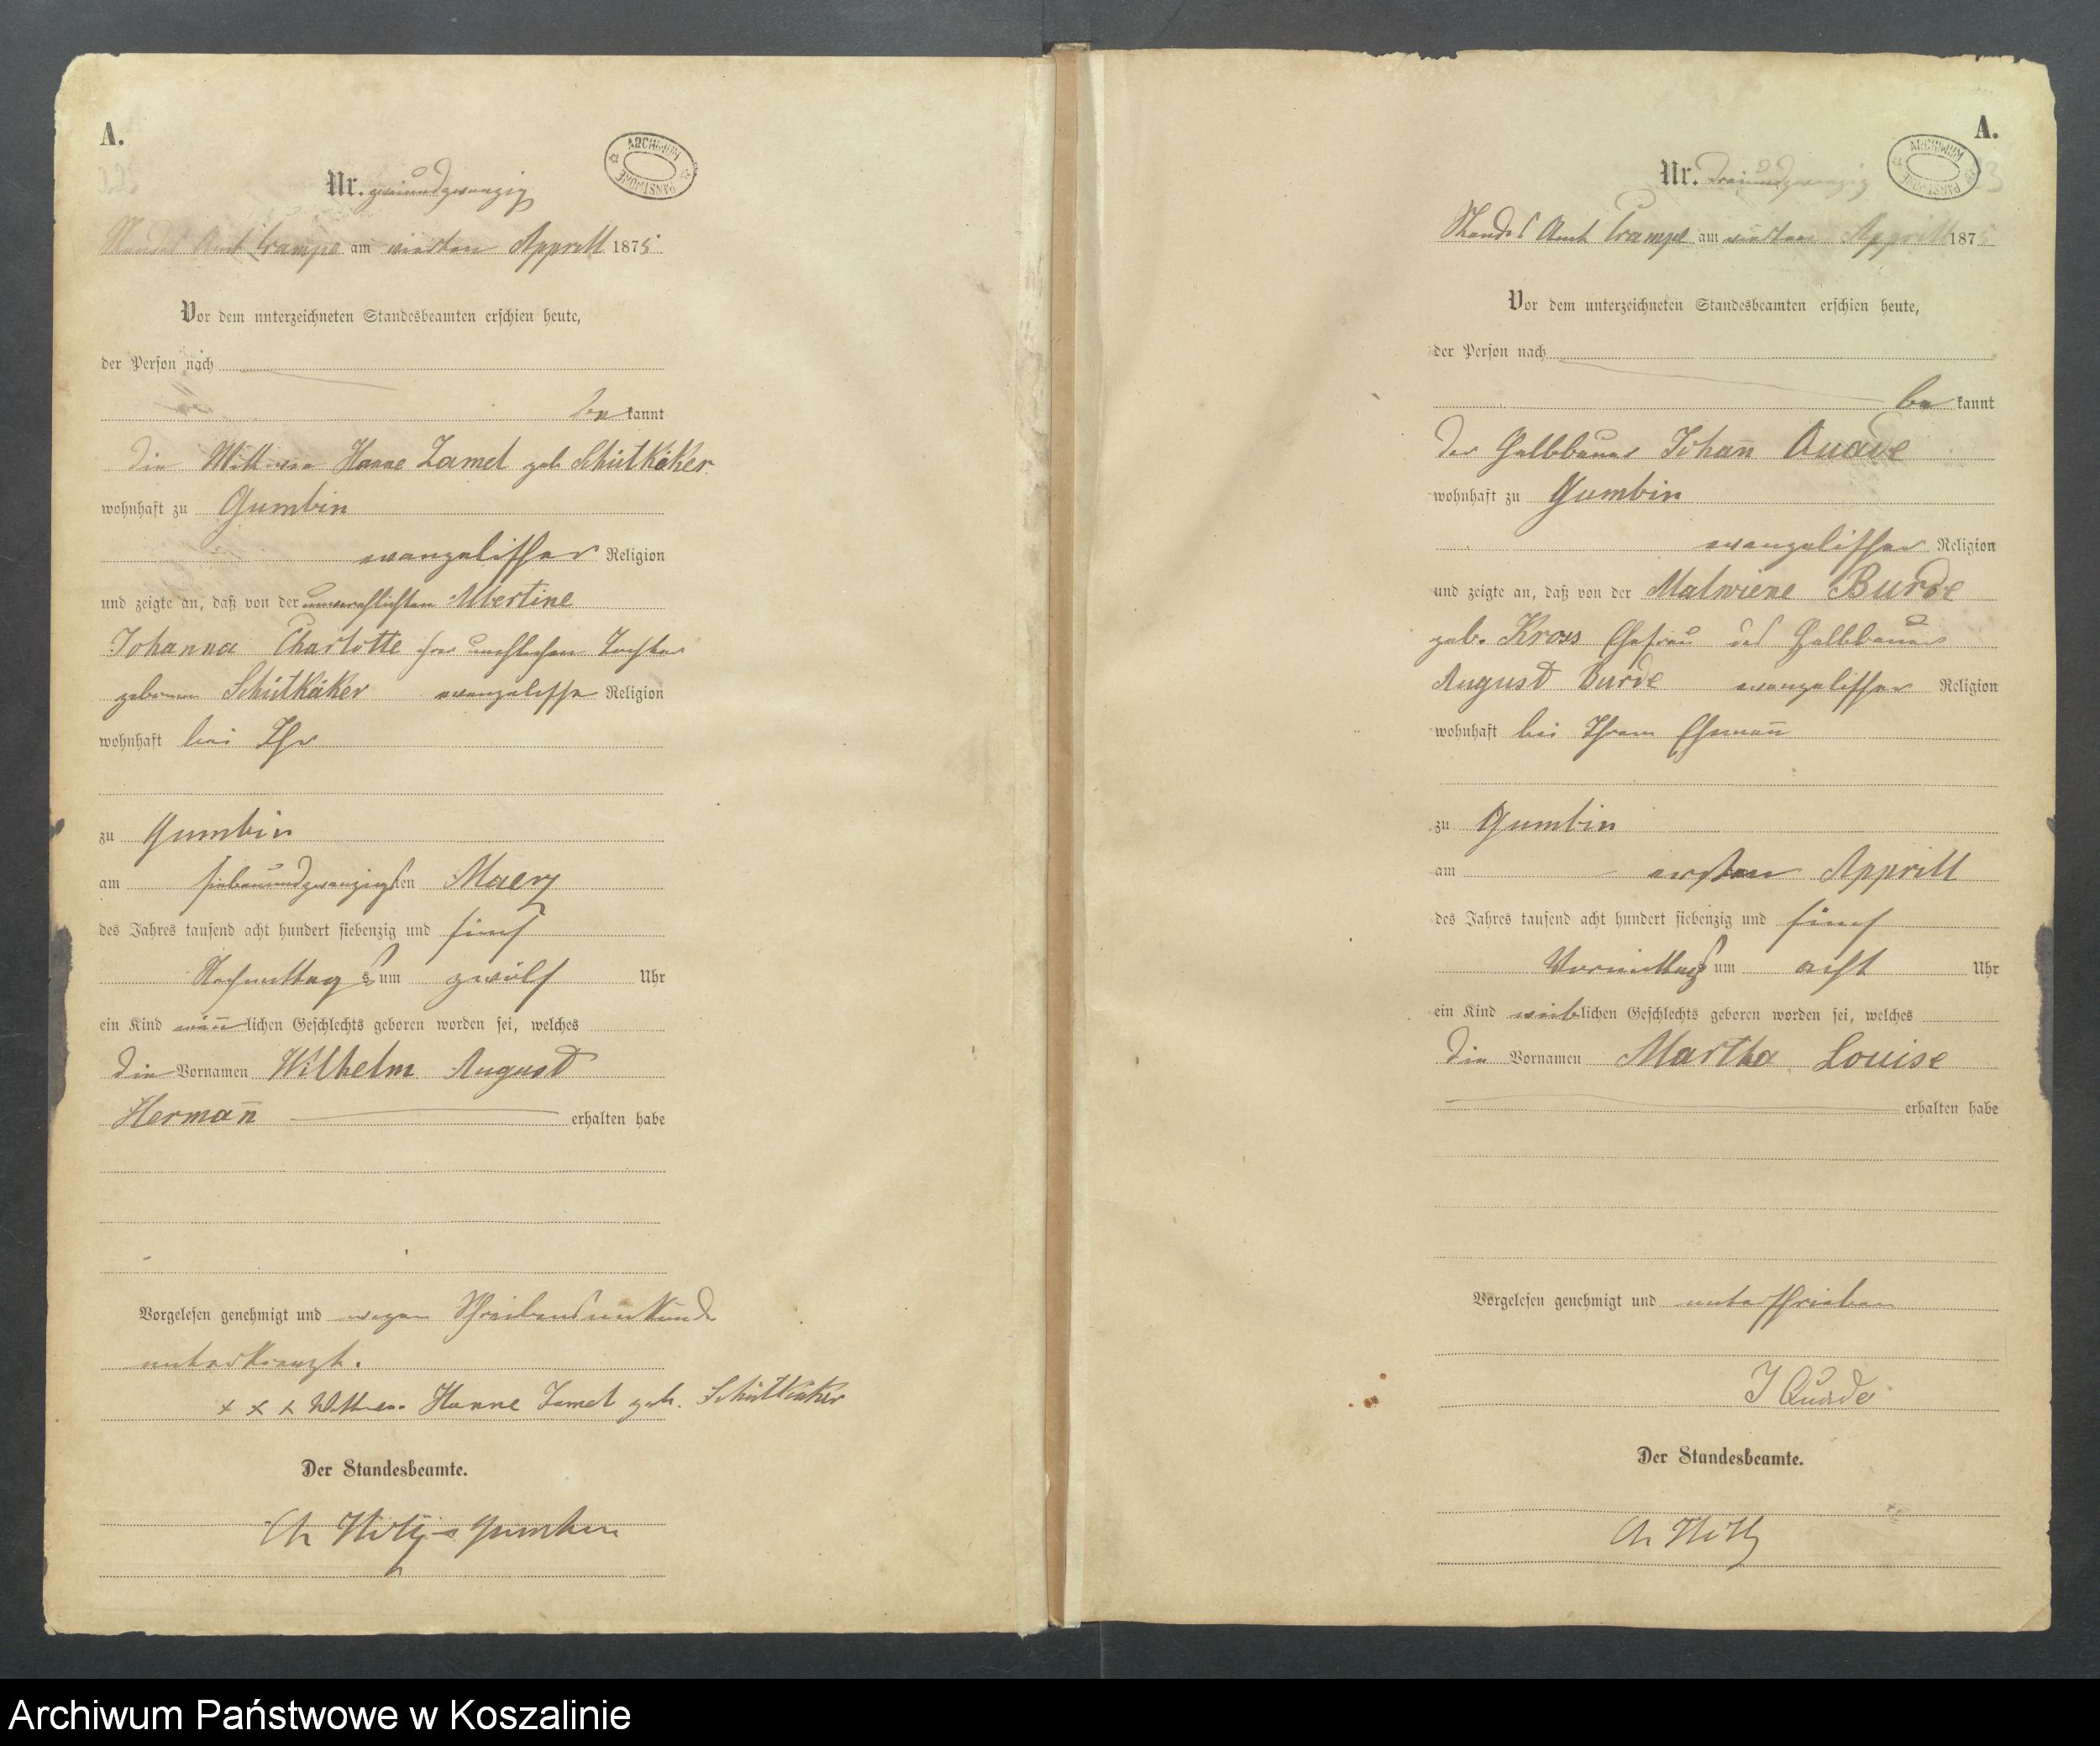 A.
ARCHIWUM PAŃSTWOWE
Nr. zweiundzwanzig
Standes Amt Crampe am vierten Apprill 1875
Vor dem unterzeichneten Standesbeamten erschien heute,
der Person nach
be kannt
die Wittwe Hanne Zamel geb. Schütkäker
wohnhaft zu Gumbin
evangelischer Religion
und zeigte an, daß von der unverehlichten Albertine
Johanna Charlotte ihrer unehlichen Tochter
geborenen Schütkäker evangelische Religion
wohnhaft bei Ihr
zu Gumbin
am siebenundzwanzigsten Maerz
des Jahres tausend acht hundert siebenzig und fünf
Nachmittags um zwölf Uhr
ein Kind männlichen Geschlechts geboren worden sei, welches
die Vornamen Wilhelm August
Hermañ erhalten habe
Vorgelesen genehmigt und wegen Schreibensunkunde
unterkreuzt.
x x x Wittwe Hanne Zamel geb. Schütkäker
Der Standesbeamte.
Gumbin
A.
ARCHIWUM PAŃSTWOWE
23
Nr. dreiundzwanzig
Standes Amt Crampe am vierten Apprill 1875
Vor dem unterzeichneten Standesbeamten erschien heute,
der Person nach
be kannt
der Halbbauer Johañ Quade
wohnhaft zu Gumbin
evangelischer Religion
und zeigte an, daß von der Malwiene Burde
geb. Kross Ehefrau des Halbbauer
August Burde evangelischer Religion
wohnhaft bei Ihrem Ehemañ
zu Gumbin
am ersten Apprill
des Jahres tausend acht hundert siebenzig und fünf
Vormittags um acht Uhr
ein Kind weiblichen Geschlechts geboren worden sei, welches
die Vornamen Martha Louise
erhalten habe
Vorgelesen genehmigt und unterschrieben
J Quade
Der Standesbeamte.
Archiwum Państwowe w Koszalinie